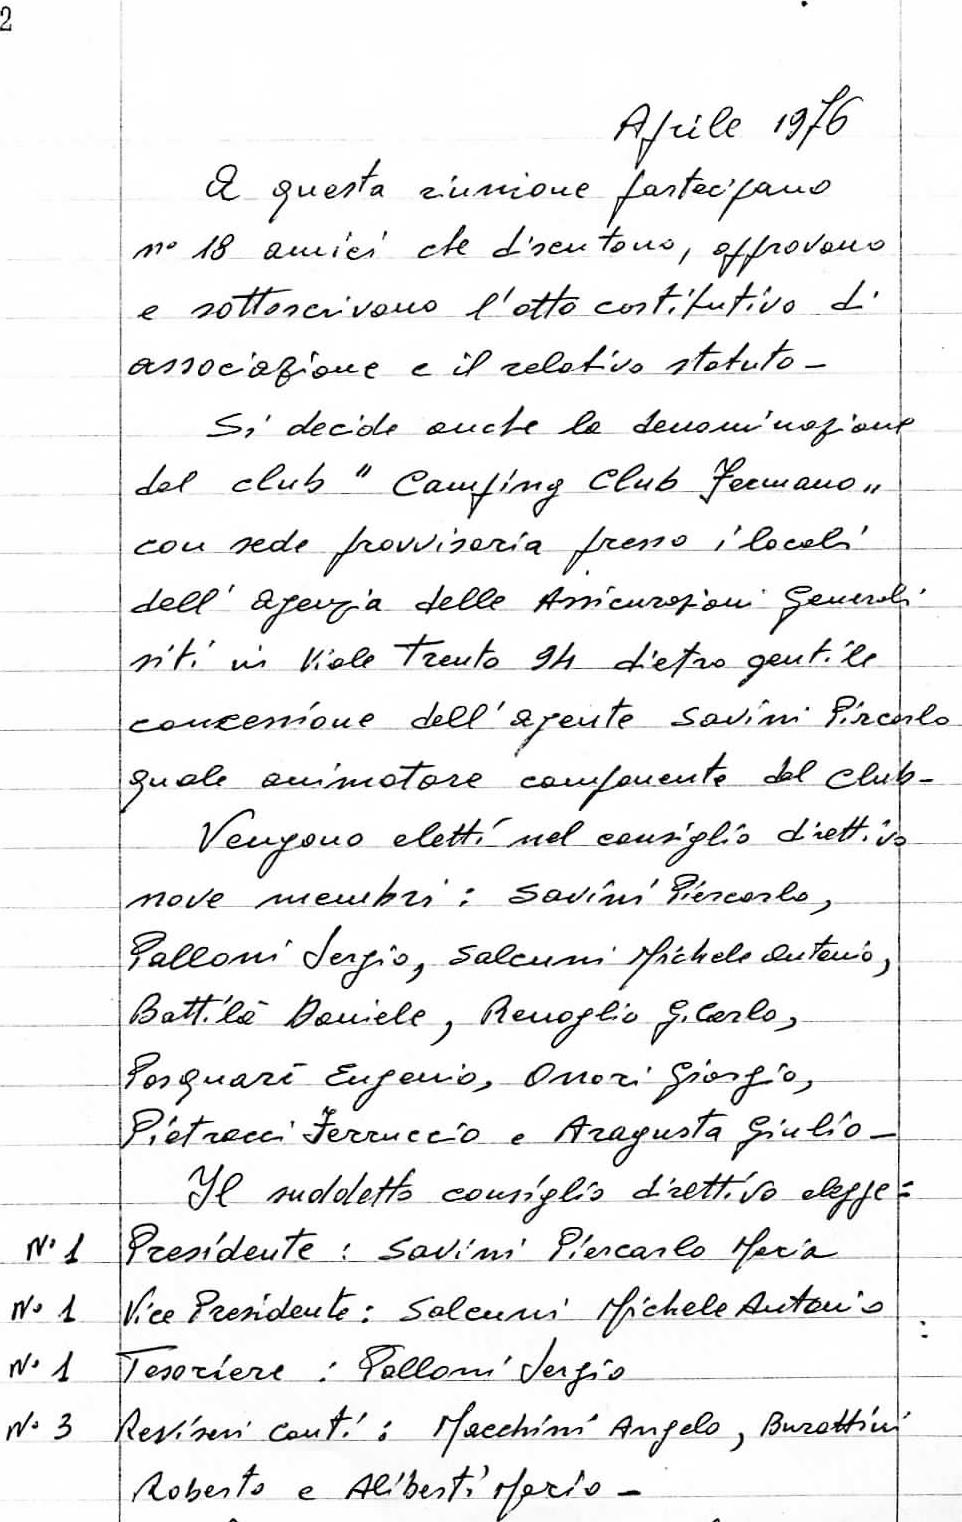 2
Aprile 1976
A questa riunione partecipano
n° 18 amici che discutono, approvano
e sottoscrivono l'atto costitutivo di
associazione e il relativo statuto -
Si decide anche la denominazione
del club " Camping Club Fermano "
con sede provvisoria presso i locali
dell' Agenzia delle Assicurazioni Generali
siti in Viale Trento 94 dietro gentile
concessione dell'agente Savini Pircarlo
quale animatore componente del club -
Vengono eletti nel consiglio direttivo
nove membri : Savini Piercarlo,
Palloni Sergio, Salcuni Michele Antonio,
Battilà Daniele, Renoglio G.Carlo,
Pasquarè Eugenio, Onori Giorgio,
Pietracci Ferruccio e Aragusta Giulio -
Il suddetto consiglio direttivo elegge :
N° 1 Presidente : Savini Piercarlo Maria
N° 1 Vice Presidente : Salcuni Michele Antonio
N° 1 Tesoriere : Palloni Sergio
N° 3 Revisori Conti : Macchini Angelo, Burattini
Roberto e Aliberti Mario -